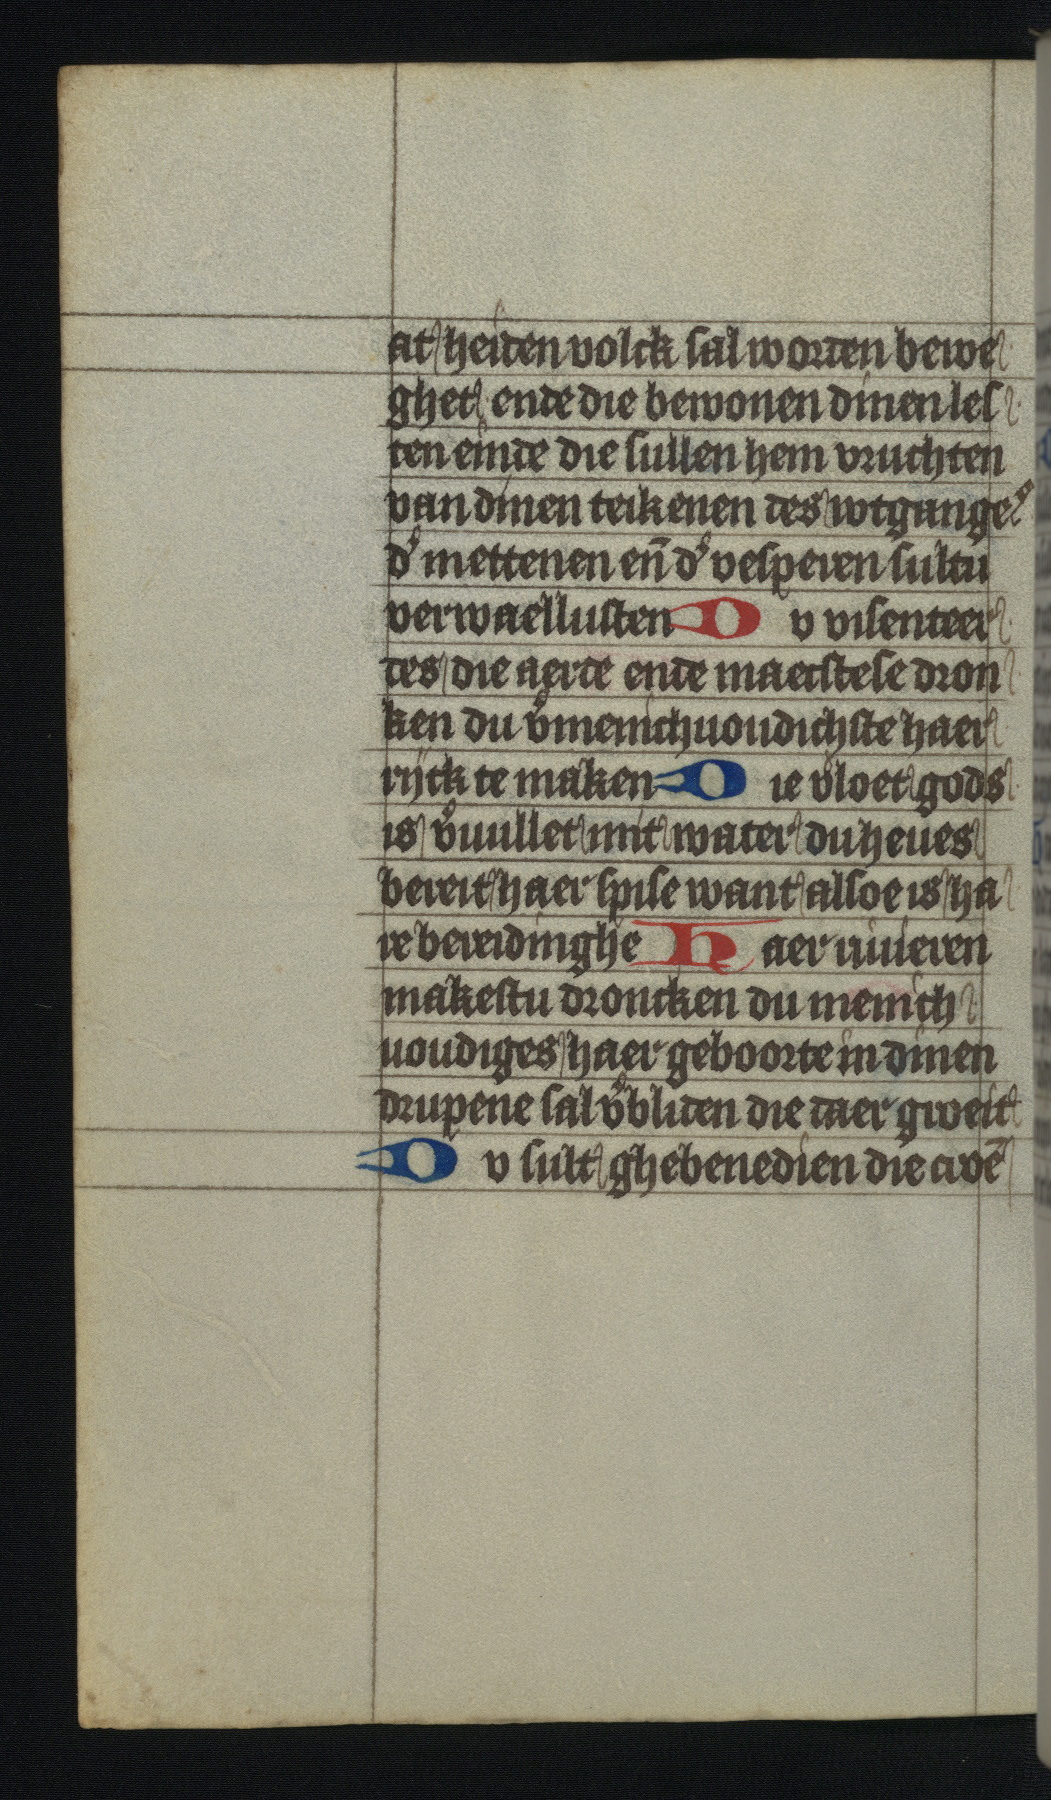 at heiden volck sal worden bewe
ghet ende die bewonen dinen les
ten einde die sullen hem vruchten
van dinen teikenen des wtganges
d' mettenen en̄ d' vesperen sultu
verwaellusten D v visenteer
des die aerde ende maecstese dron
ken du v'menichuoudichste haer
rijck te maken D ie vloet gods
is v'uullet mit water du heues
bereit haer spise want alsoe is ha
re bereidinghe H aer riuieren
makestu droncken du menich
uoudiges haer geboorte in dinen
drupene sal v'bliden die daer groeit
D v sult ghebenedien die croē